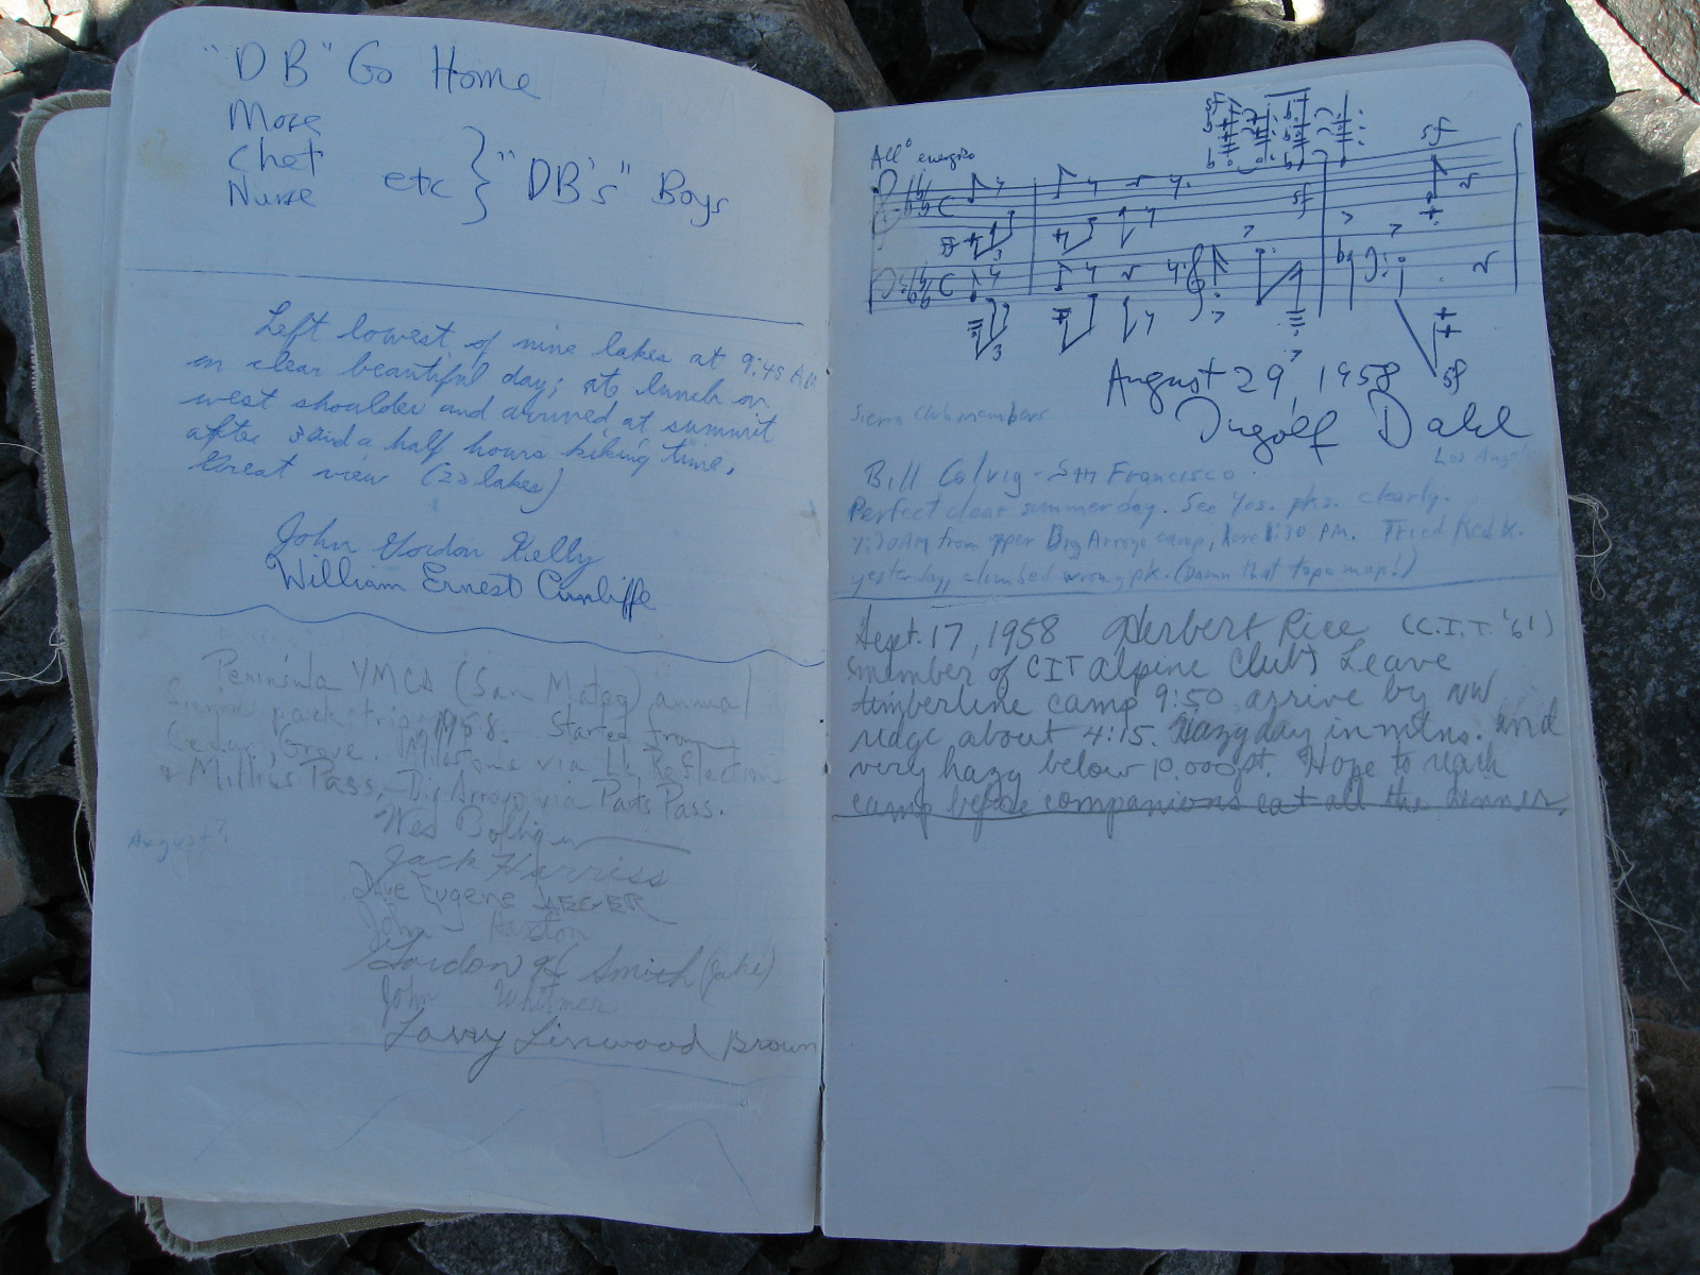 "DB" Go Home
More
Chet
Nurse
etc } "DB's" Boys
Left lowest of nine lakes at 9:45 AM
on clear beautiful day; ate lunch on
west shoulder and arrived at summit
after 3 and a half hours hiking time.
Great view (22 lakes)
John Gordon Kelly
William Ernest Cunliffe
Peninsula YMCA (San Mateo) annual
pack trip 1958. Started from
Cedar Grove. Milestone via L. Reflection
+ Millies Pass, Big Arroyo via Pants Pass.
Wes
Jack Harriss
August
Eugene
John
Gordon Smith (Jake)
John Whitmer
Larry Linwood Brown
All° energico
sf
sf
sf
3
3
3
sf
August 29, 1958
Ingolf Dahl
Los Angeles
Sierra Club members
Bill Colvig - San Francisco
Perfect clear summer day. See Yos. pks. clearly.
7:30 AM from upper Big Arroyo camp, here 1:30 PM. Tried Red K.
yesterday, climbed wrong pk. (Damn that topo map!)
Sept. 17, 1958 Herbert Rice (C.I.T. '61)
member of CIT Alpine Club) Leave
timberline camp 9:50 arrive by NW
ridge about 4:15. Hazy day in mtns. and
very hazy below 10,000 ft. Hope to reach
camp before companions eat all the dinner.